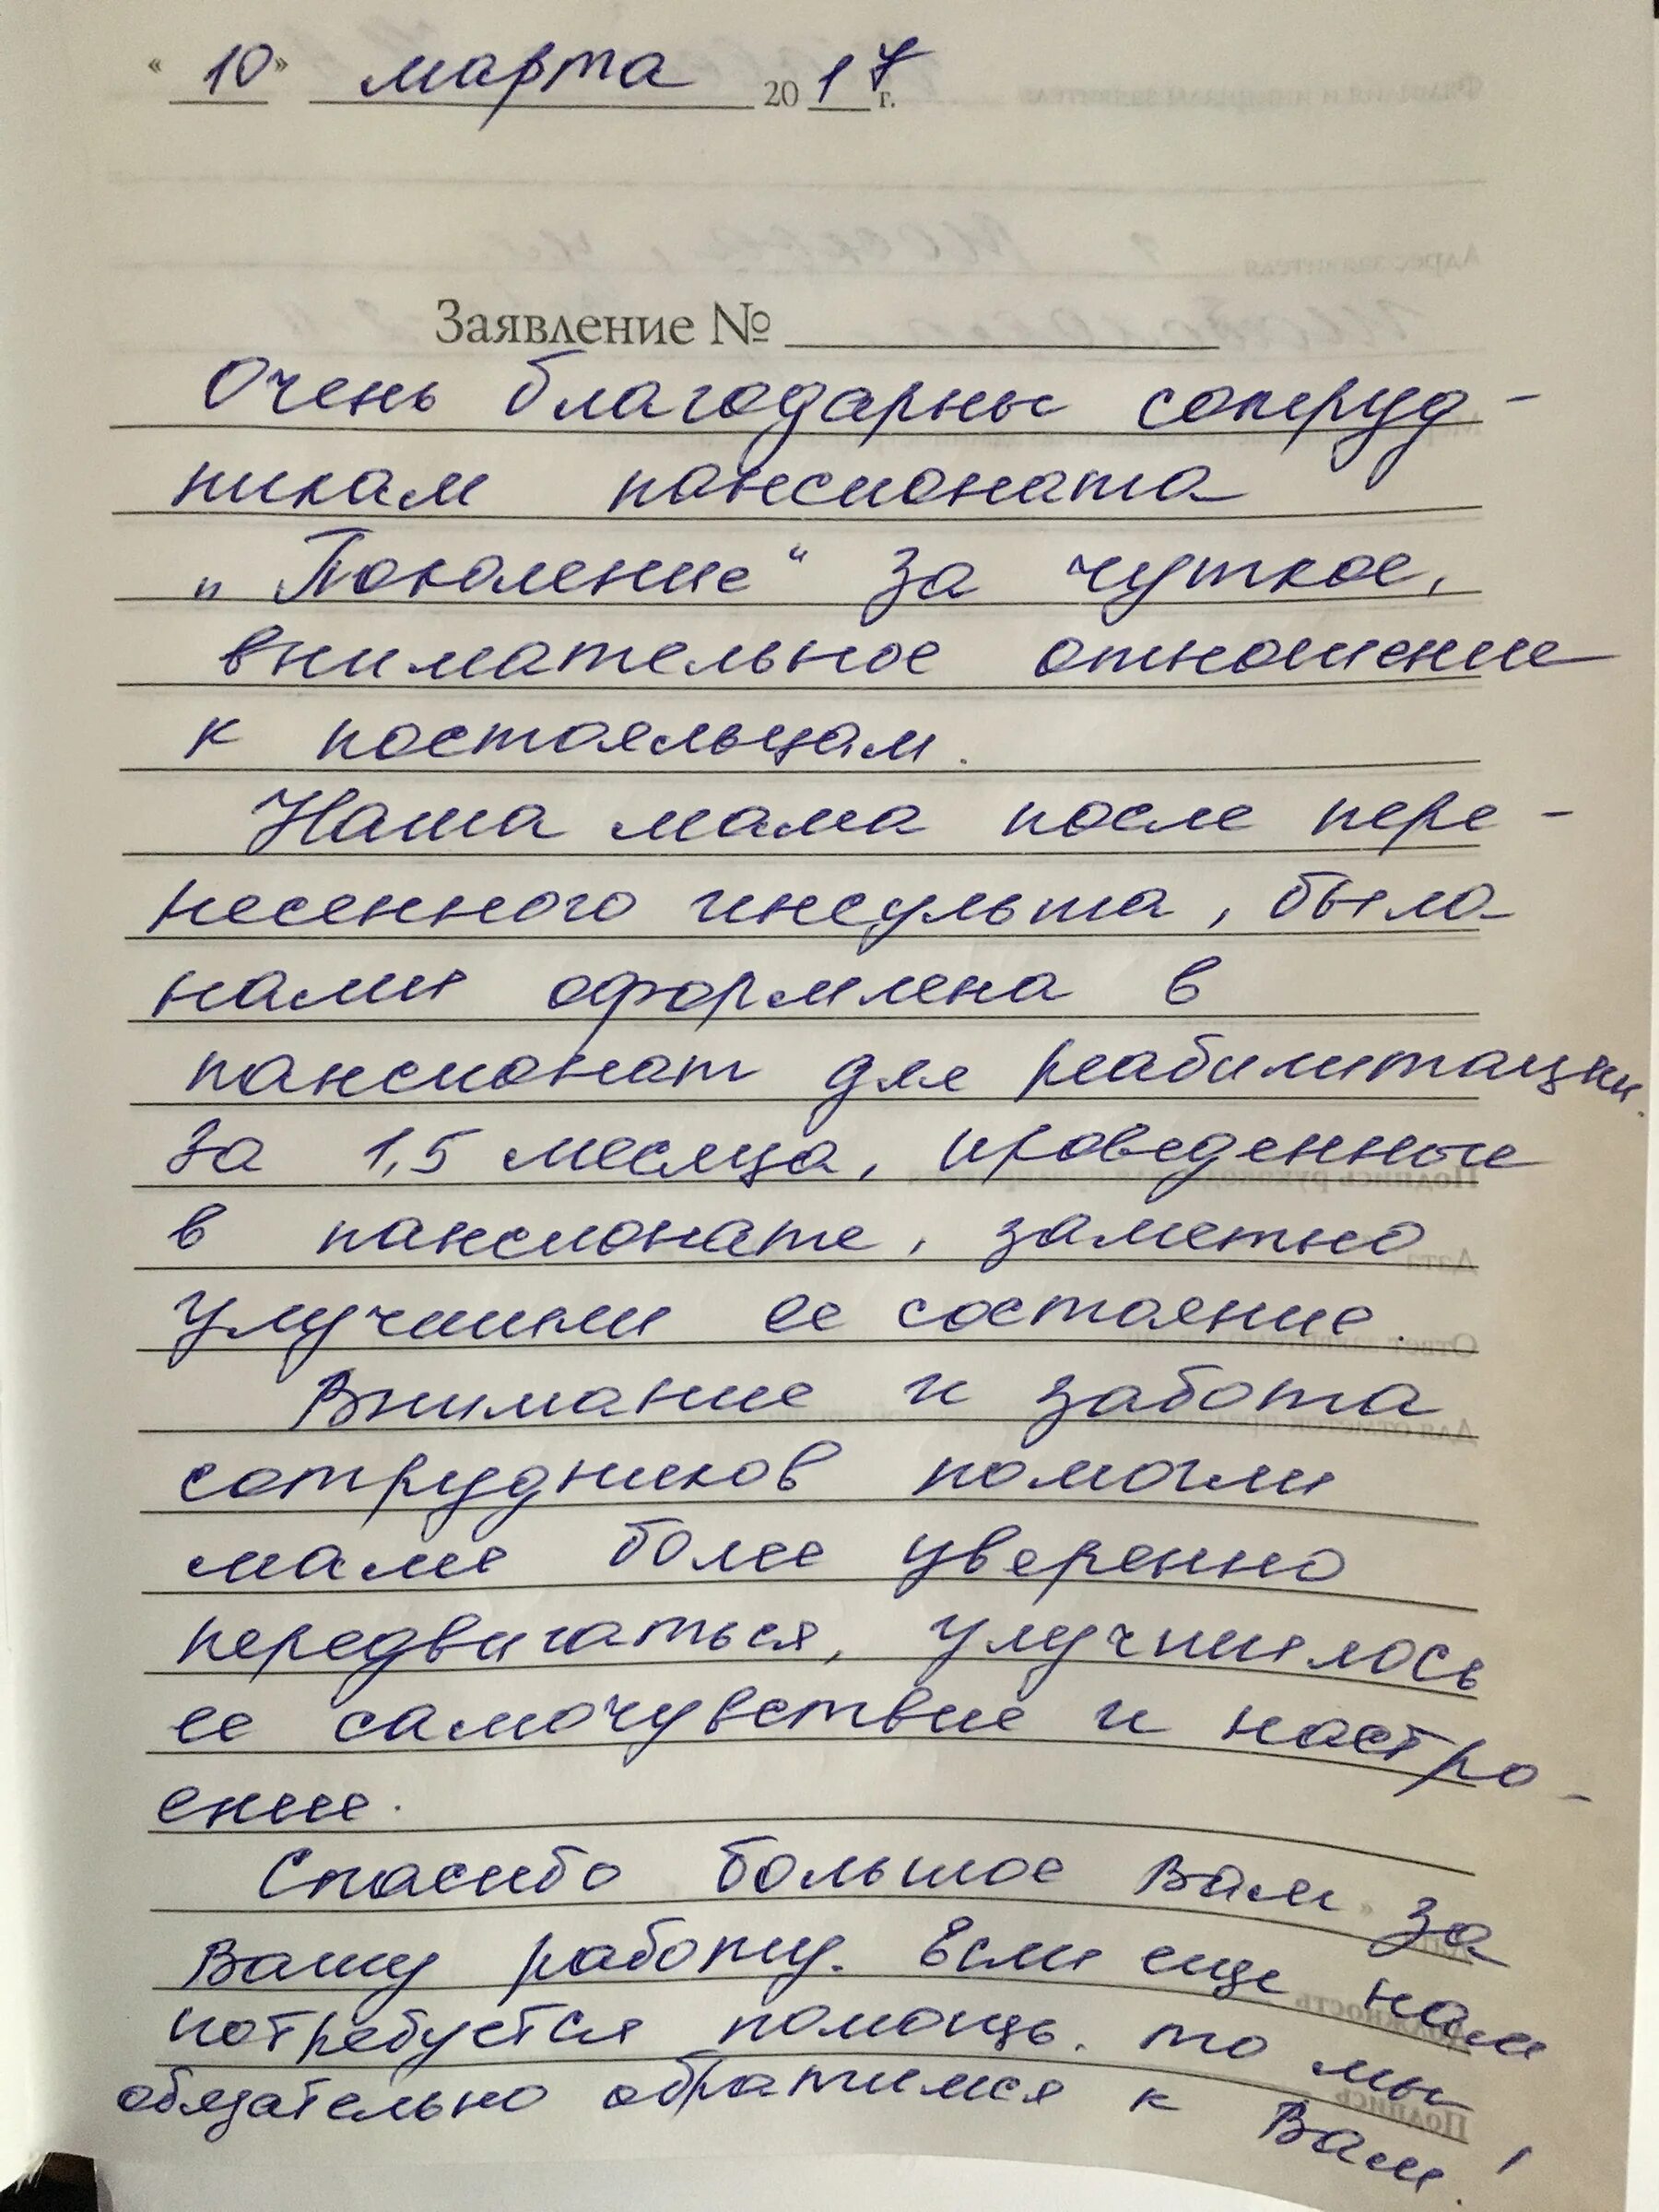 « 10 » марта 2017 г.
Заявление №
Очень благодарны сотруд-
никам пансионата
„Поколение“ за чуткое,
внимательное отношение
к постояльцам.
Наша мама после пере-
несенного инсульта, была
нами оформлена в
пансионат для реабилитации.
За 1,5 месяца, проведенные
в пансионате, заметно
улучшили ее состояние.
Внимание и забота
сотрудников помогли
маме более уверенно
передвигаться, улучшилось
ее самочувствие и настро-
ение.
Спасибо большое Вам за
Вашу работу. Если еще нам
потребуется помощь, то мы
обязательно обратимся к Вам!